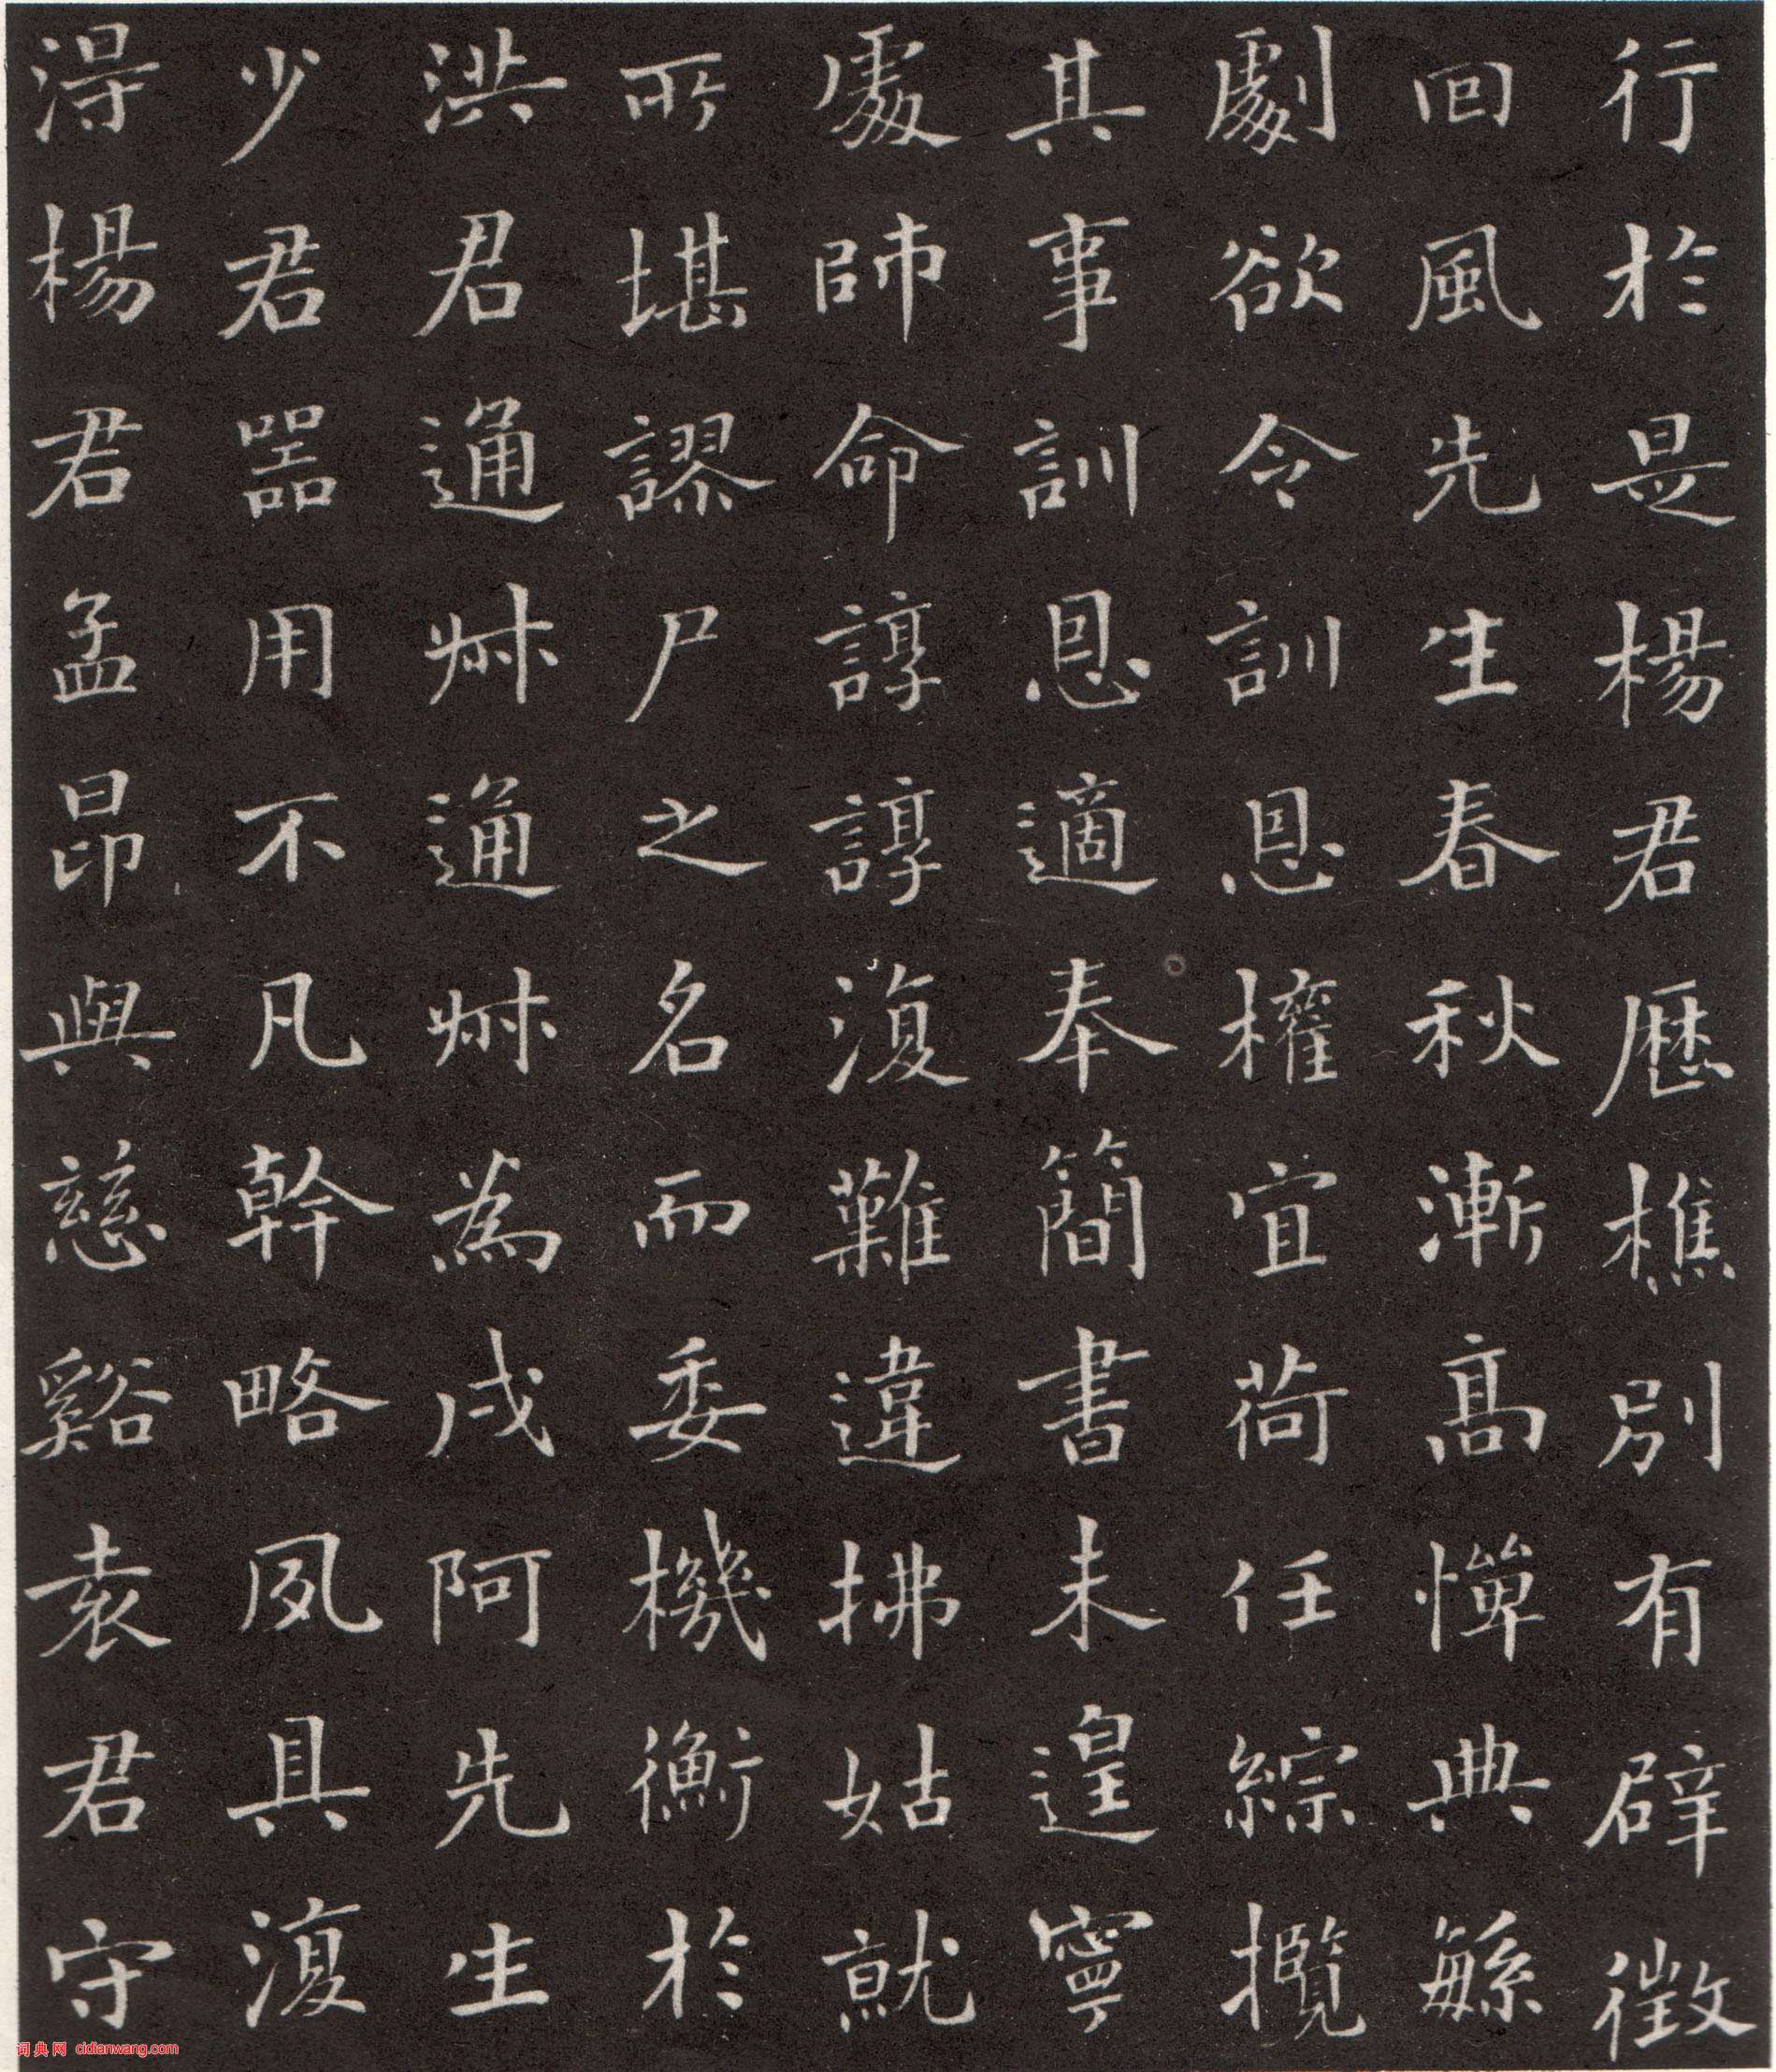 行於是楊君歷樵別有辟徵
回風先生春秋漸高憚典緐
劇欲令訓恩權宜荷任綜攬
其事訓恩適奉簡書未遑寧
處師命諄諄復難違拂姑就
所堪謬尸之名而委機衡於
洪君通叔通叔為戌阿先生
少君器用不凡幹略夙具復
得楊君孟昂與慈谿袁君守
词典网 cidianwang.com